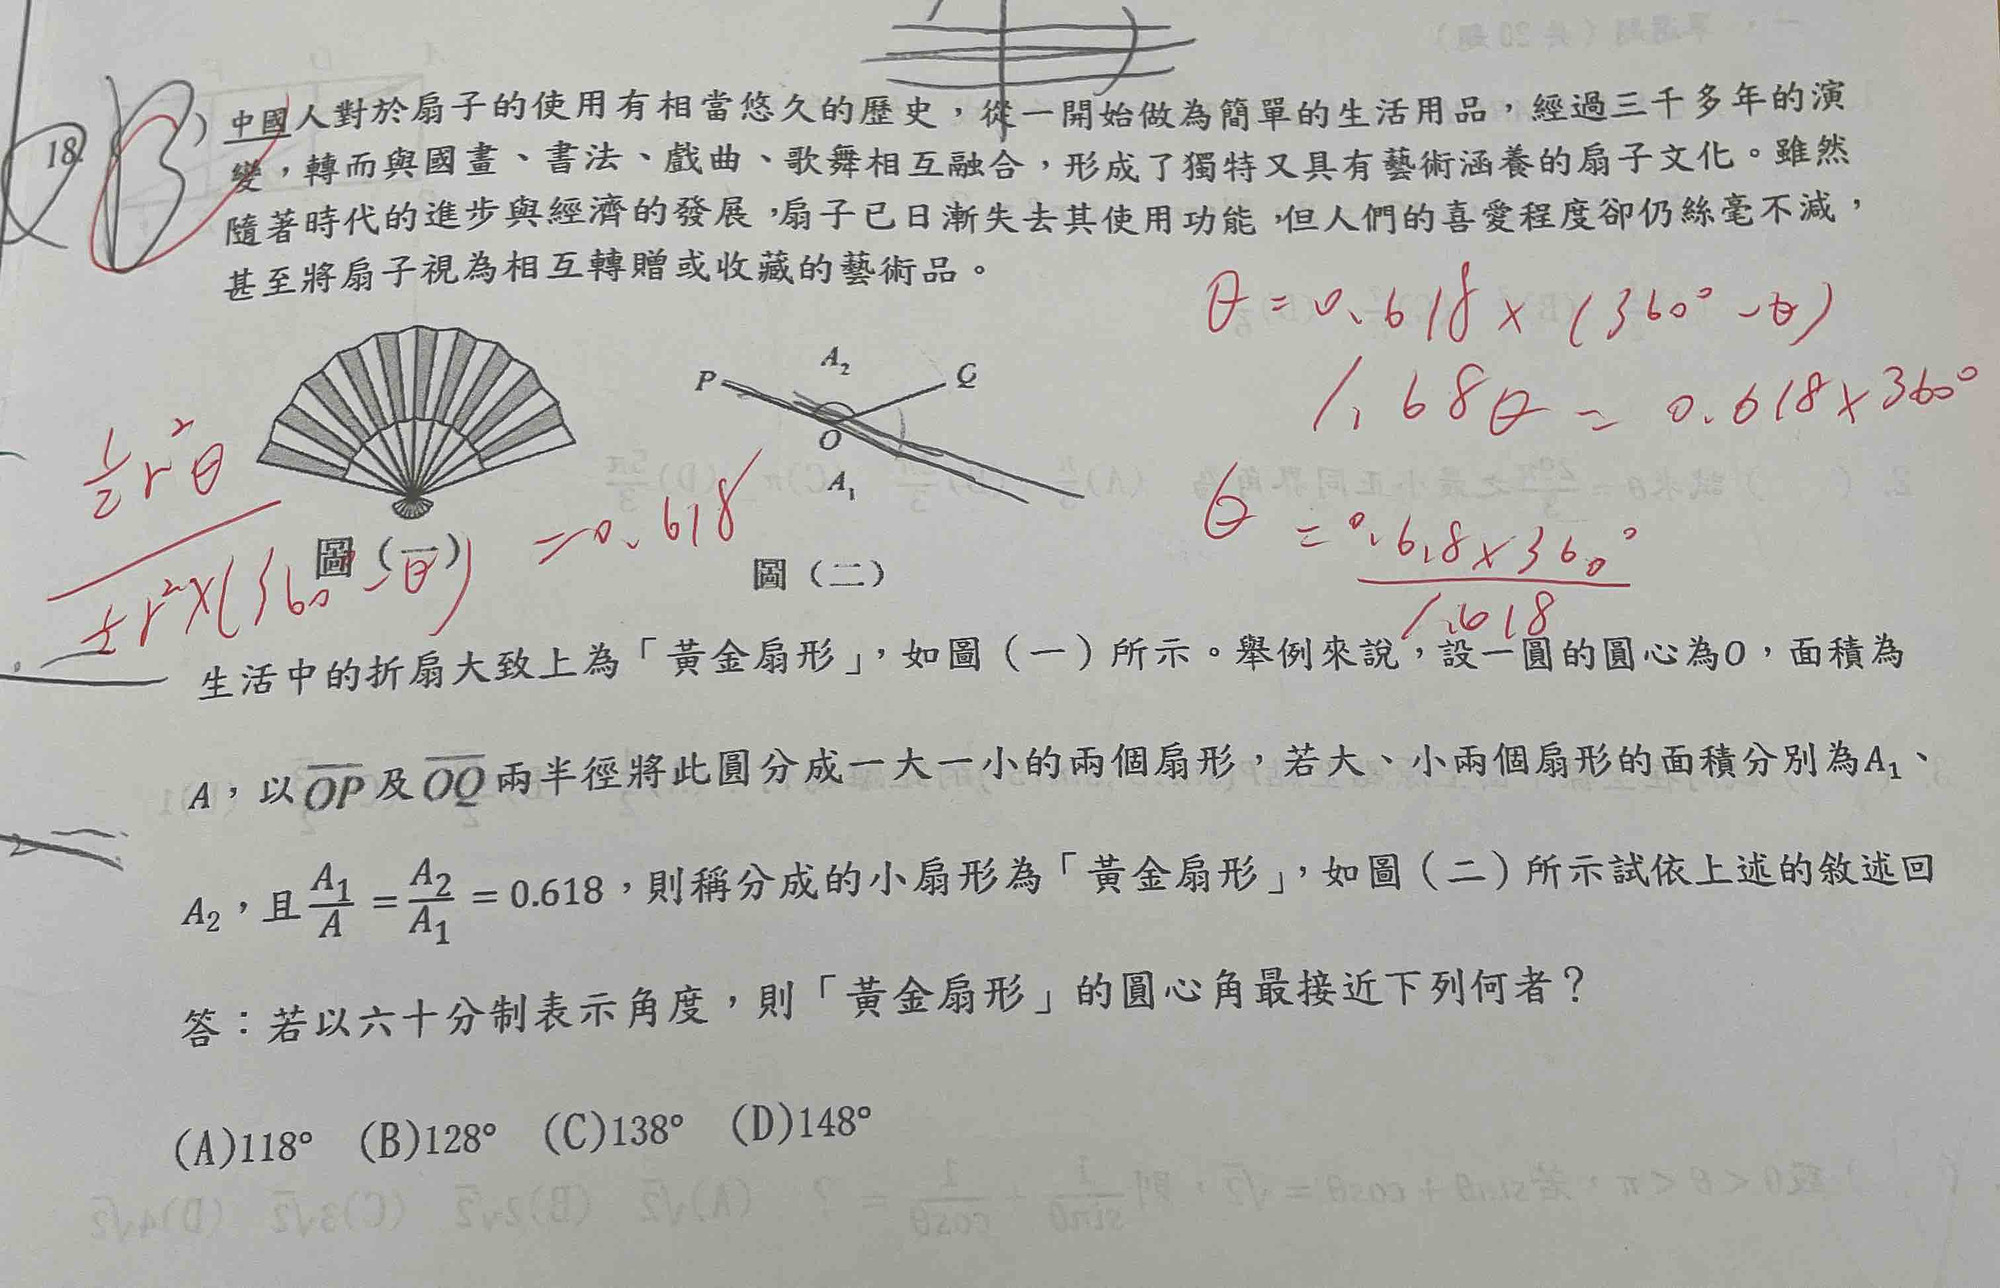 18. B )中國人對於扇子的使用有相當悠久的歷史，從一開始做為簡單的生活用品，經過三千多年的演
變，轉而與國畫、書法、戲曲、歌舞相互融合，形成了獨特又具有藝術涵養的扇子文化。雖然
隨著時代的進步與經濟的發展，扇子已日漸失去其使用功能，但人們的喜愛程度卻仍絲毫不減，
甚至將扇子視為相互轉贈或收藏的藝術品。
θ = 0.618 × (360° - θ)
1.68θ = 0.618 × 360°
θ = 0.618 × 360° / 1.618
½r²θ / ½r²×(360 - θ) = 0.618
P A₂ Q
O
A₁
圖（一）
圖（二）
生活中的折扇大致上為「黃金扇形」，如圖（一）所示。舉例來說，設一圓的圓心為O，面積為
A，以OP及OQ兩半徑將此圓分成一大一小的兩個扇形，若大、小兩個扇形的面積分別為A₁、
A₂，且A₁/A = A₂/A₁ = 0.618，則稱分成的小扇形為「黃金扇形」，如圖（二）所示試依上述的敘述回
答：若以六十分制表示角度，則「黃金扇形」的圓心角最接近下列何者？
(A)118° (B)128° (C)138° (D)148°